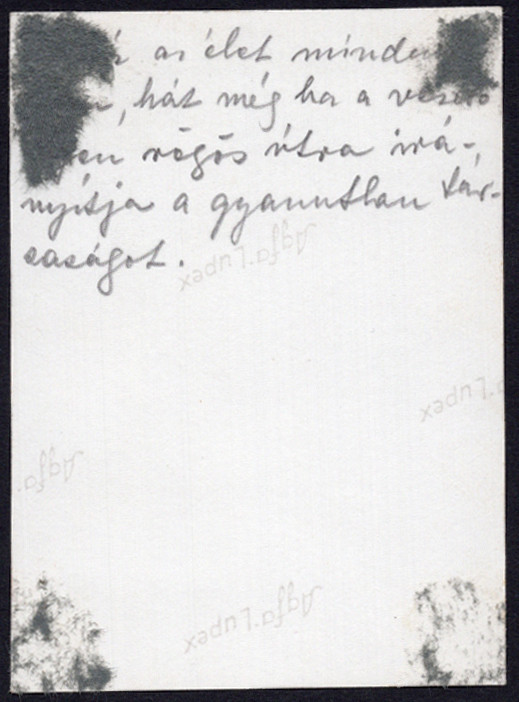 az élet minden
, hát még ha a vezető
rögös útra irá-
nyítja a gyanutlan tár-
saságot.
Agfa-Lupex
Lupex
Agfa
Agfa-Lupex